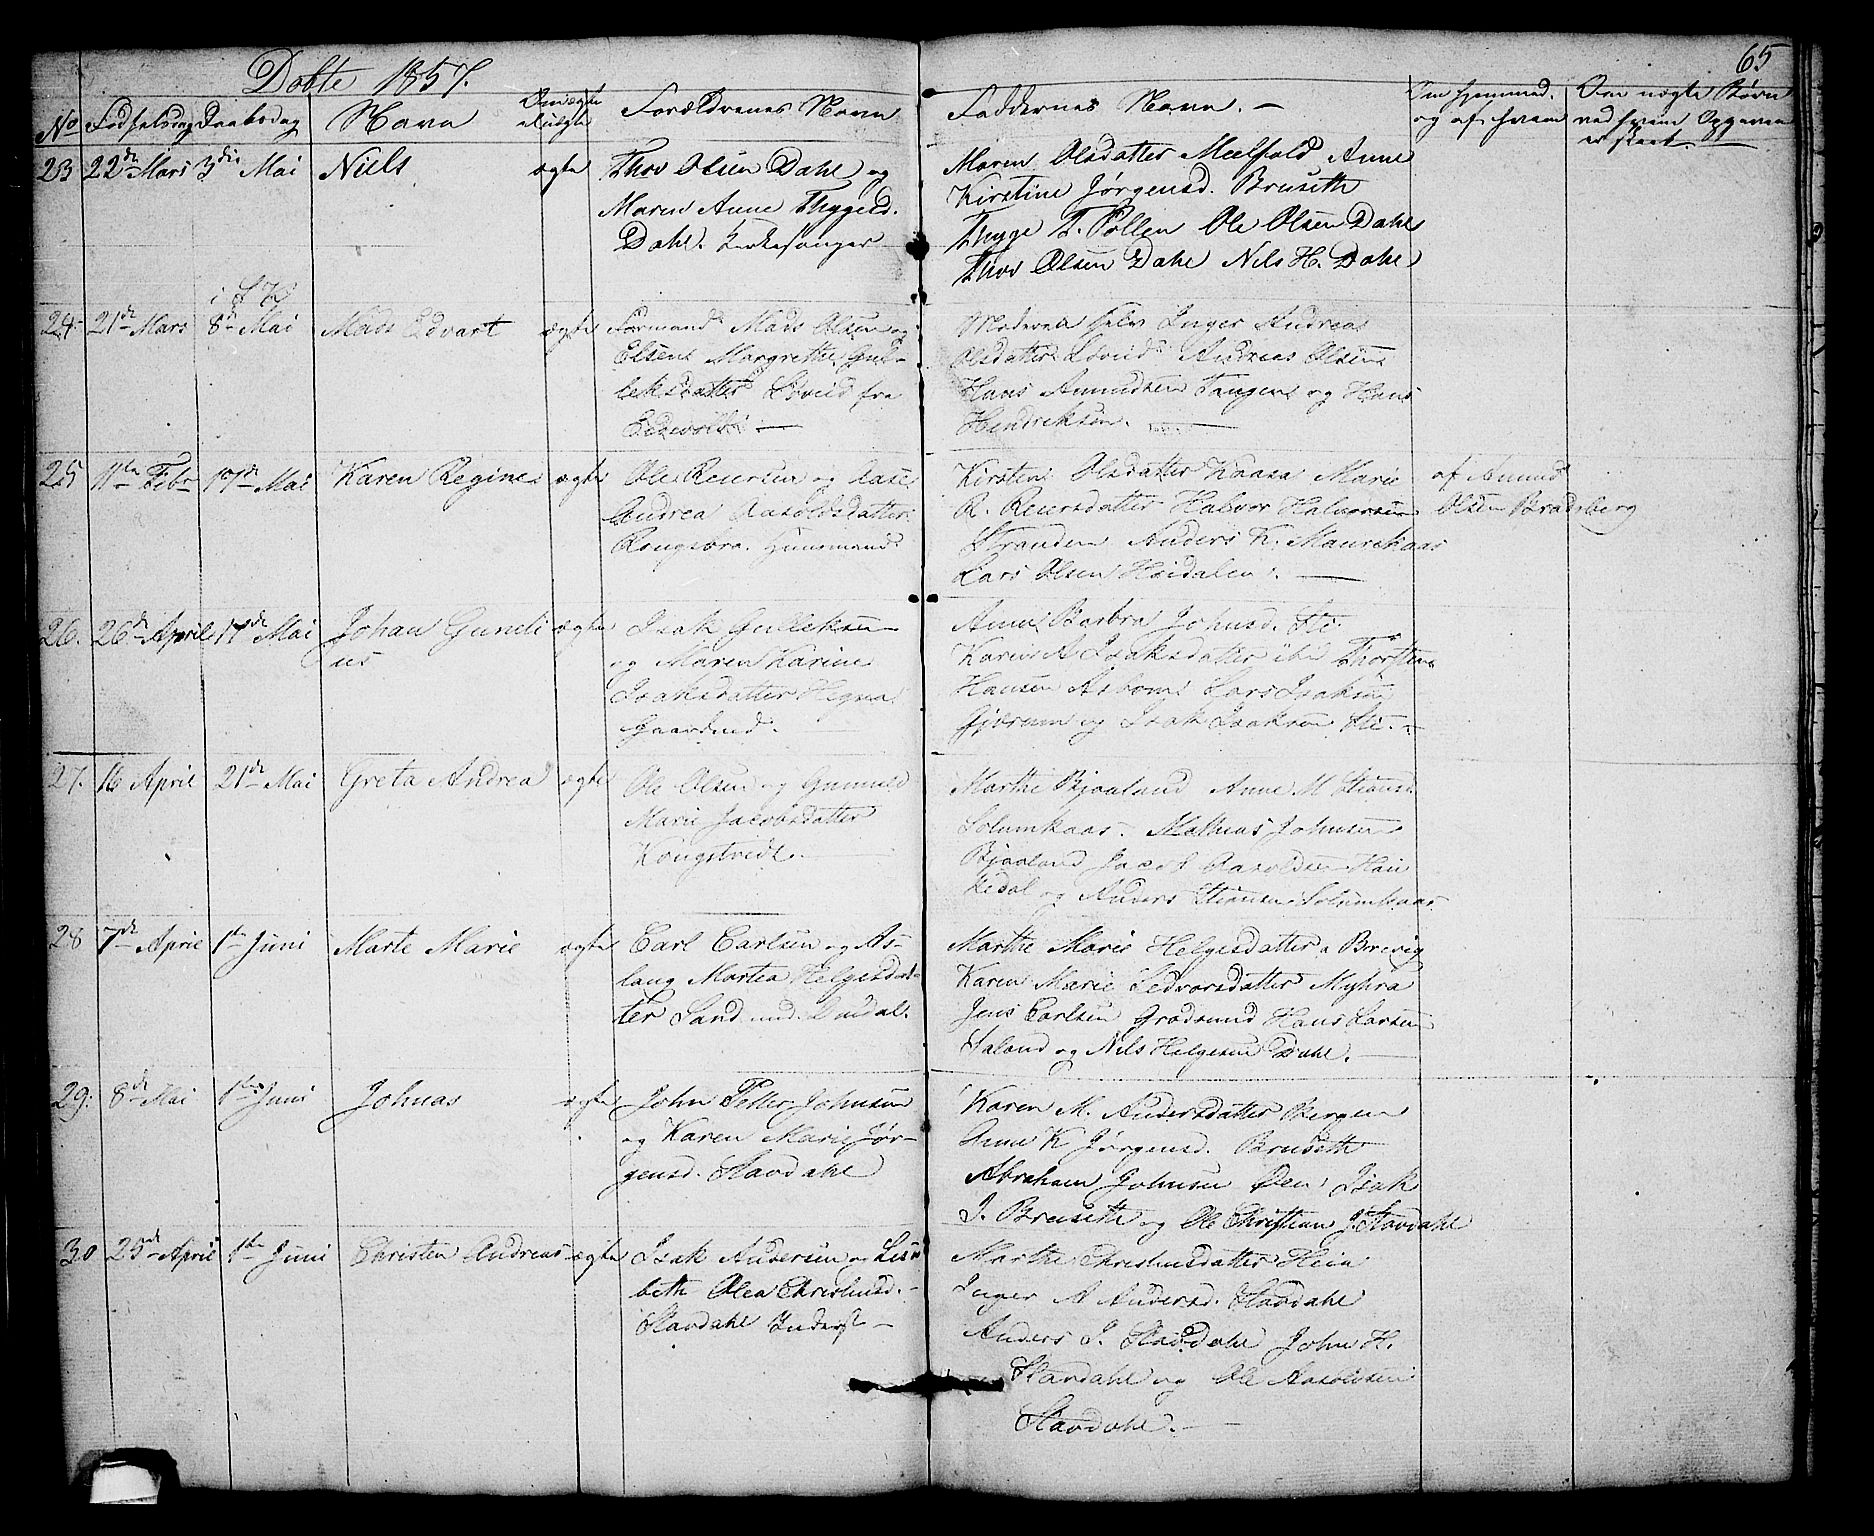 65
Døbte 1857.
No Fødselsdag Daabsdag Navn Om ægte el. uægte Forældrenes Navn Faddernes Navn. – Om hjemmed. og af hvem Om uægte Børn ved hvem Opgaven er skeet
23 22de Mars 3die Mai Niels ægte
Thov Olsen Dahl og
Maren Anne Thygesd.
Dahl. Kirkesanger
Maren Olsdatter Meelfald Anne
Kirstine Jørgensd. Bruseth
Thyge T. Pollen Ole Olsen Dahl
Thov Olsen Dahl Nils H. Dahl
24. 21de Mars 8de Mai Mads Edvart ægte
Formand Mads Olsen og
Elsene Margrethe Gul-
leksdatter Løvlid fra
Moderen selv Inger Andrea
Olsdatter Løvlid Andreas Olsen
Hans Amundsen Tangen og Hans
Hendriksen. –
25 11te Febr 17de Mai Karen Regine ægte
Ole Reiersen og Aase
Andrea Aasoldsdatter
Rongsbro. Huusmand
Kirsten Olsdatter Kaasa Marie
R. Reiersdatter Halvor Halvorsen
Stranden Anders K. Maurekaas
Lars Olsen Høidalen. –
af Amund
Olsen Bradsberg
26. 26de April 17de Mai Johan Guneli
us ægte
Isak Gulleksen
og Maren Karine
Isaksdatter Hegna
Gaardmd.
Anne Barbra Johnsd. Lie
Karen A Isaksdatter ibid Thorsten
Hansen Asbom Lars Isaksen
Gjerum og Isak Isaksen Lie. –
27. 16 April 21de Mai Greta Andrea ægte
Ole Olsen og Gunnild
Marie Jacobsdatter
Kongstvedt. –
Marthe Bjaaland Anne M. Steansd.
Solumkaas. Mathias Johnsen
Bjaaland Jacob Aasoldsen Hau
kedal og Anders Steansen Solumkaas
28 7de April 1te Juni Marte Marie ægte
Carl Carlsen og As-
laug Martea Helgesdat-
ter Sand md. Dusdal.
Marthe Marie Helgesdatter a Brevig
Karen Marie Sedvorsdatter Myhra
Jens Carlsen Grødsund Hans Larsen
Saland og Nils Helgesen Dahl. –
29. 8de Mai 1te Juni Johnas ægte
John Petter Johnsen
og Karen Marie Jør-
gensd. Stavdahl
Karen M. Andersdatter Bergen
Anne K Jørgensd. Bruseth
Abraham Johnsen Øen Isak
J. Bruseth og Ole Christian J. Stavdahl
30 25de April 1te Juni Christen Andreas ægte
Isak Andersen og Lisa
beth Olea Christensd.
Stavdahl Inderst –
Marthe Christensdatter Heia
Inger A Andersd. Stavdahl
Anders I. Stavdahl John H.
Stavdahl og Ole Aasoldsen
Stavdahl. –